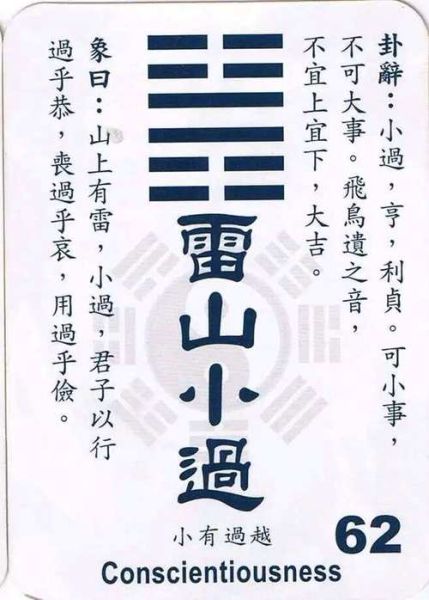 卦辭：小過，亨，利貞。可小事，
不可大事。飛鳥遺之音，
不宜上宜下，大吉。
雷山小過
象曰：山上有雷，小過，君子以行
過乎恭，喪過乎哀，用過乎儉。
小有過越
62
Conscientiousness